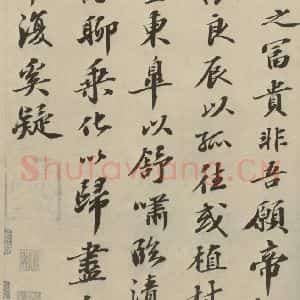 之冨貴非吾願帝
良辰以孤往或植杖
東皐以舒嘯臨清
聊乘化以歸盡
復奚疑
Shufawang.CN